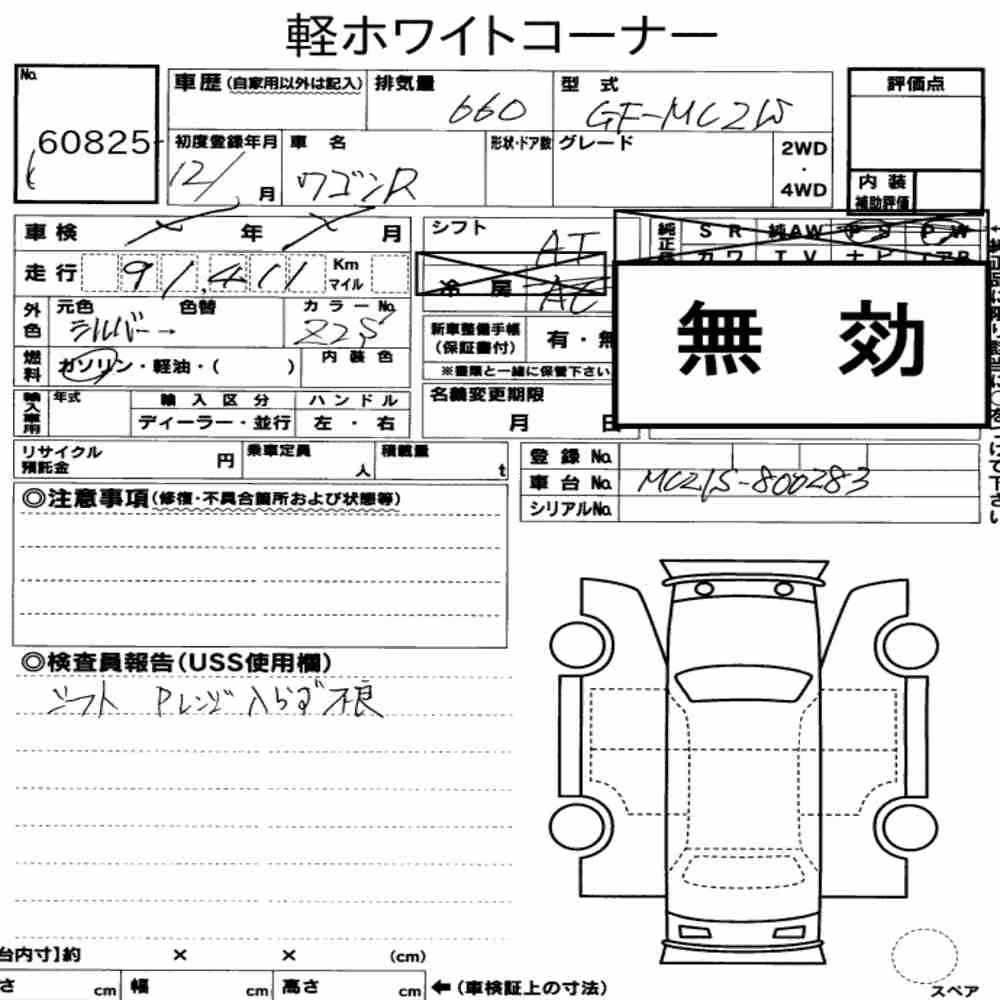 軽ホワイトコーナー
No.
60825-
車歴(自家用以外は記入) 排気量 660 型式 GF-MC21S
評価点
初度登録年月 12/ 月 車名 ワゴンR 形状・ドア数 グレード 2WD・4WD
内装補助評価
車検 年 月
シフト AT
純正品 SR 純AW PS PW
カワ TV ナビ エアB
走行 91,411 Km マイル
冷房 AC
外色 元色 シルバー→ 色替 カラーNo. Z2S
新車整備手帳(保証書付) 有・無
※書類と一緒に保管下さい。
無効
燃料 ガソリン・軽油・( ) 内装色
名義変更期限 月 日
輸入車用 年式 輸入区分 ディーラー・並行 ハンドル 左・右
リサイクル預託金 円 乗車定員 人 積載量 t
登録No.
車台No. MC21S-800283
シリアルNo.
◎注意事項(修復・不具合箇所および状態等)
◎検査員報告(USS使用欄)
シフト Pレンジ入らず不良
台内寸】約 × × (cm)
さ cm 幅 cm 高さ cm ←(車検証上の寸法)
スペア